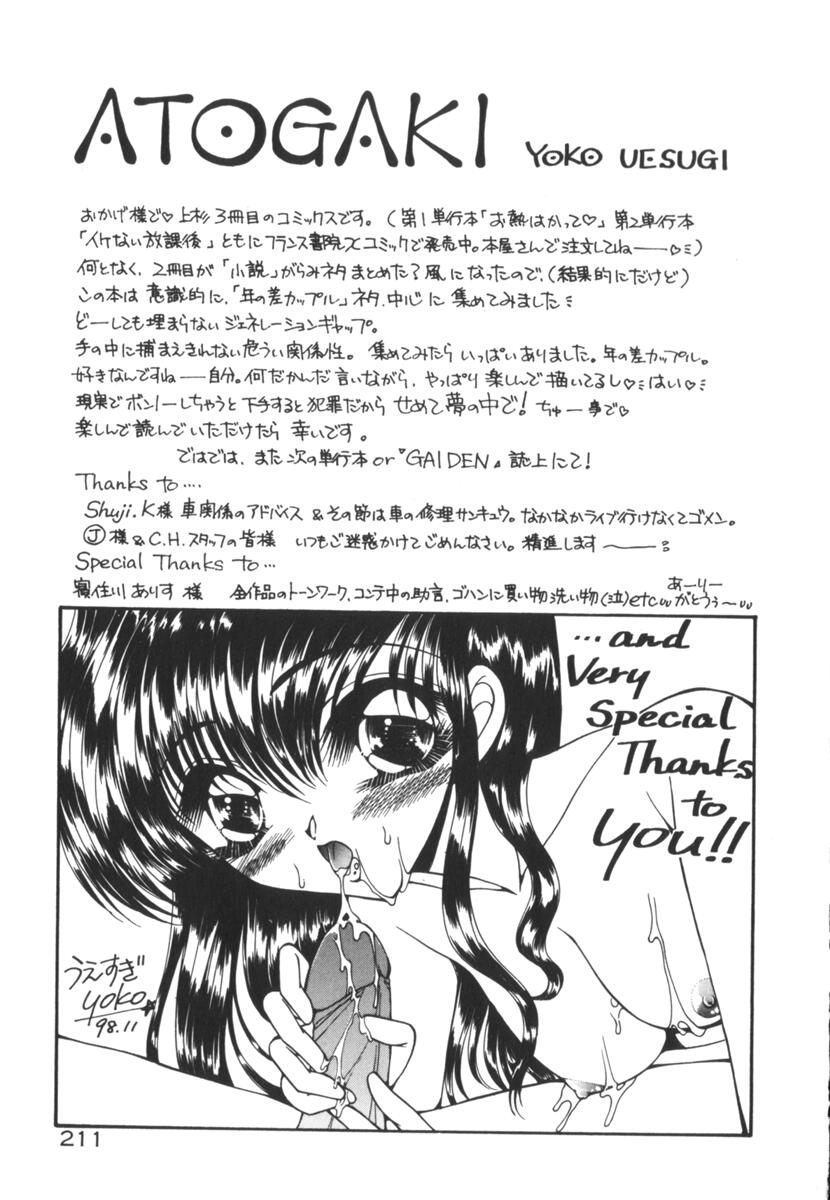 ATOGAKI YOKO UESUGI
おかげ様で♡上杉3冊目のコミックスです。(第1単行本「お熱はかって♡」第2単行本
「イケない放課後」ともにフランス書院Xコミックで発売中。本屋さんで注文してねーー♡ミ)
何となく、2冊目が「小説」がらみネタまとめた?風になったので、(結果的にだけど)
この本は意識的に、「年の差カップル」ネタ、中心に集めてみましたミ
どーしても埋まらないジェネレーションギャップ。
手の中に捕まえきれない危うい関係性。集めてみたらいっぱいありました。年の差カップル。
好きなんですねーー自分。何だかんだ言いながら、やっぱり楽しんで描いてるし♡ミはい♡ミ
現実でボンノーしちゃうと下手すると犯罪だからせめて夢の中で!ちゅー事で♡
楽しんで読んでいただけたら幸いです。
ではでは、また次の単行本or『GAIDEN』誌上にて!
Thanks to....
Shuji.K様 車関係のアドバイス&その節は車の修理サンキュウ。なかなかライブ行けなくてゴメン。
Ⓙ様&C.H.スタッフの皆様 いつもご迷惑かけてごめんなさい。精進します〜〜
Special Thanks to...
寝住川ありす様 全作品のトーンワーク、コンテ中の助言、ゴハンに買い物洗い物(泣)etc あーりーがとうぅ〜
...and
Very
Special
Thanks
to
You!!
うえすぎ
yoko
98.11
211